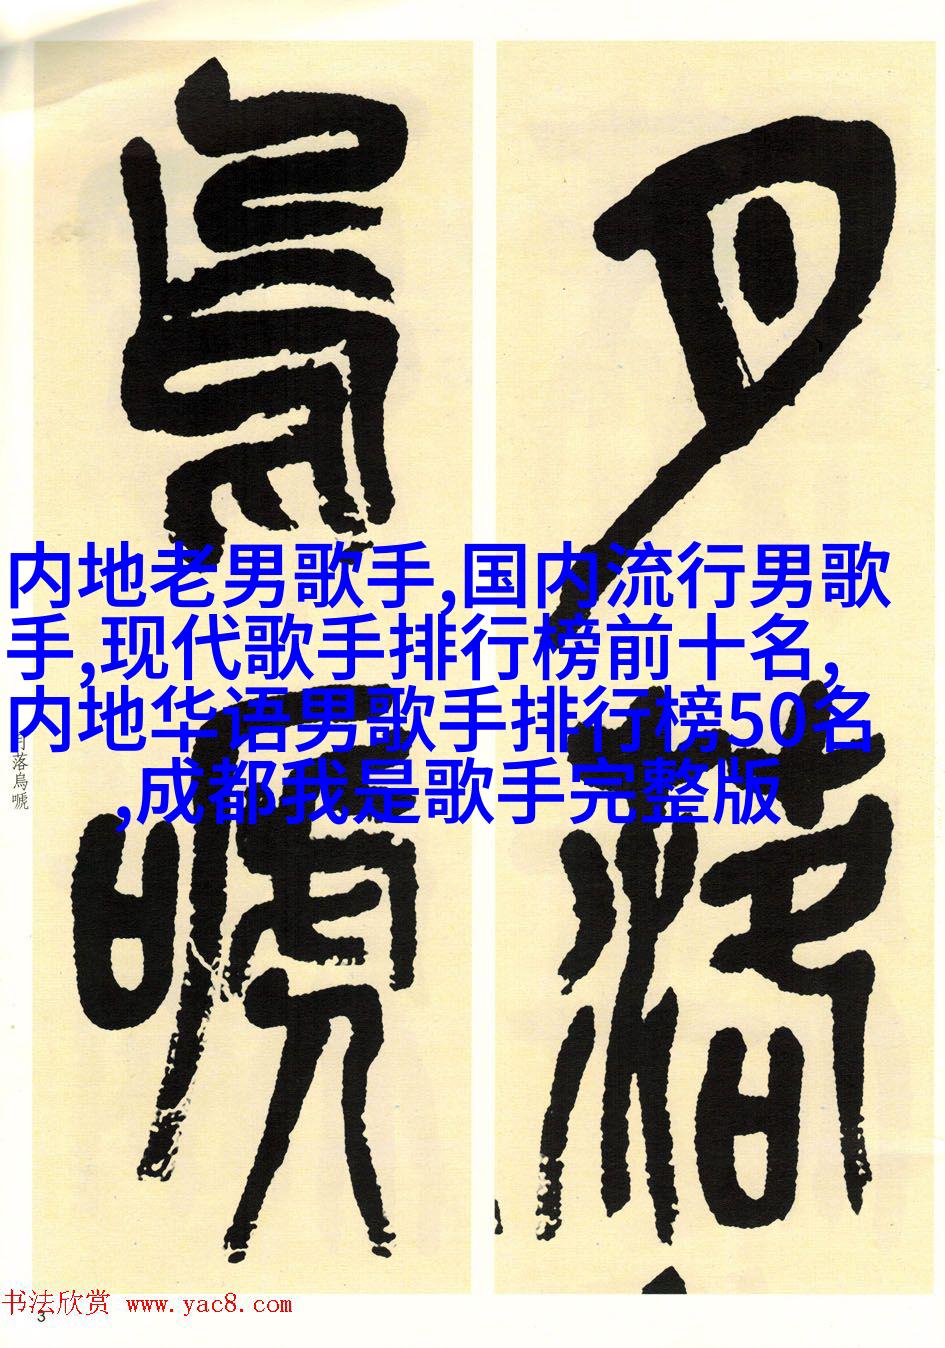 月落
烏嗁
内地老男歌手,国内流行男歌
手,现代歌手排行榜前十名,
内地华语男歌手排行榜50名
,成都我是歌手完整版
月落烏嗁
书法欣赏 www.yac8.com
3